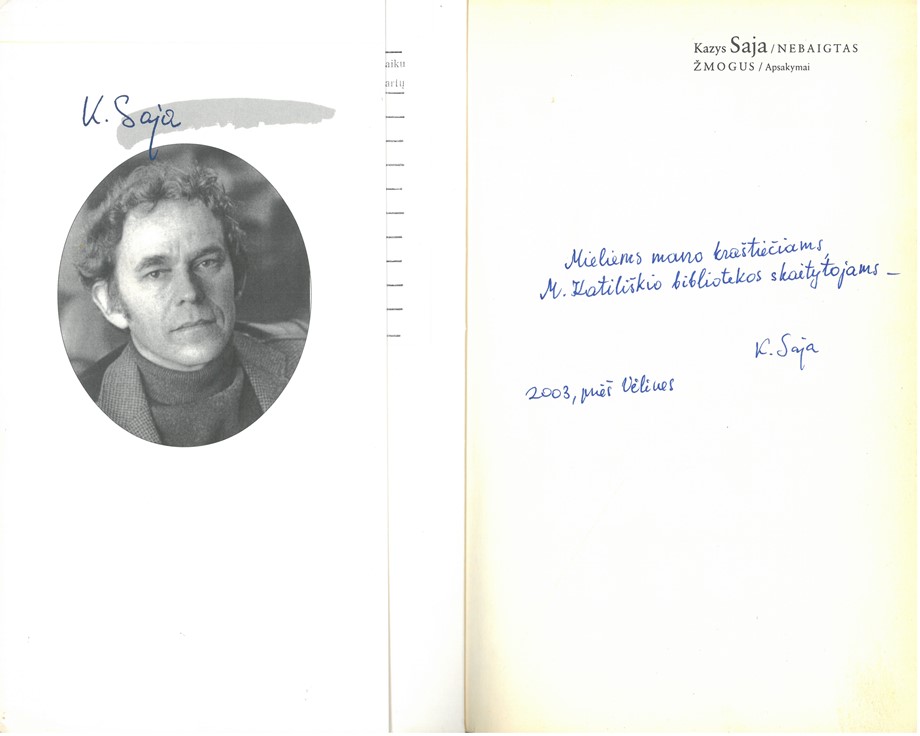 K. Saja
aiku
arty
Kazys Saja / NEBAIGTAS
ŽMOGUS / Apsakymai
Mieliems mano kraštiečiams,
M. Katiliškio bibliotekos skaitytojams –
K. Saja
2003, prieš Vėlines